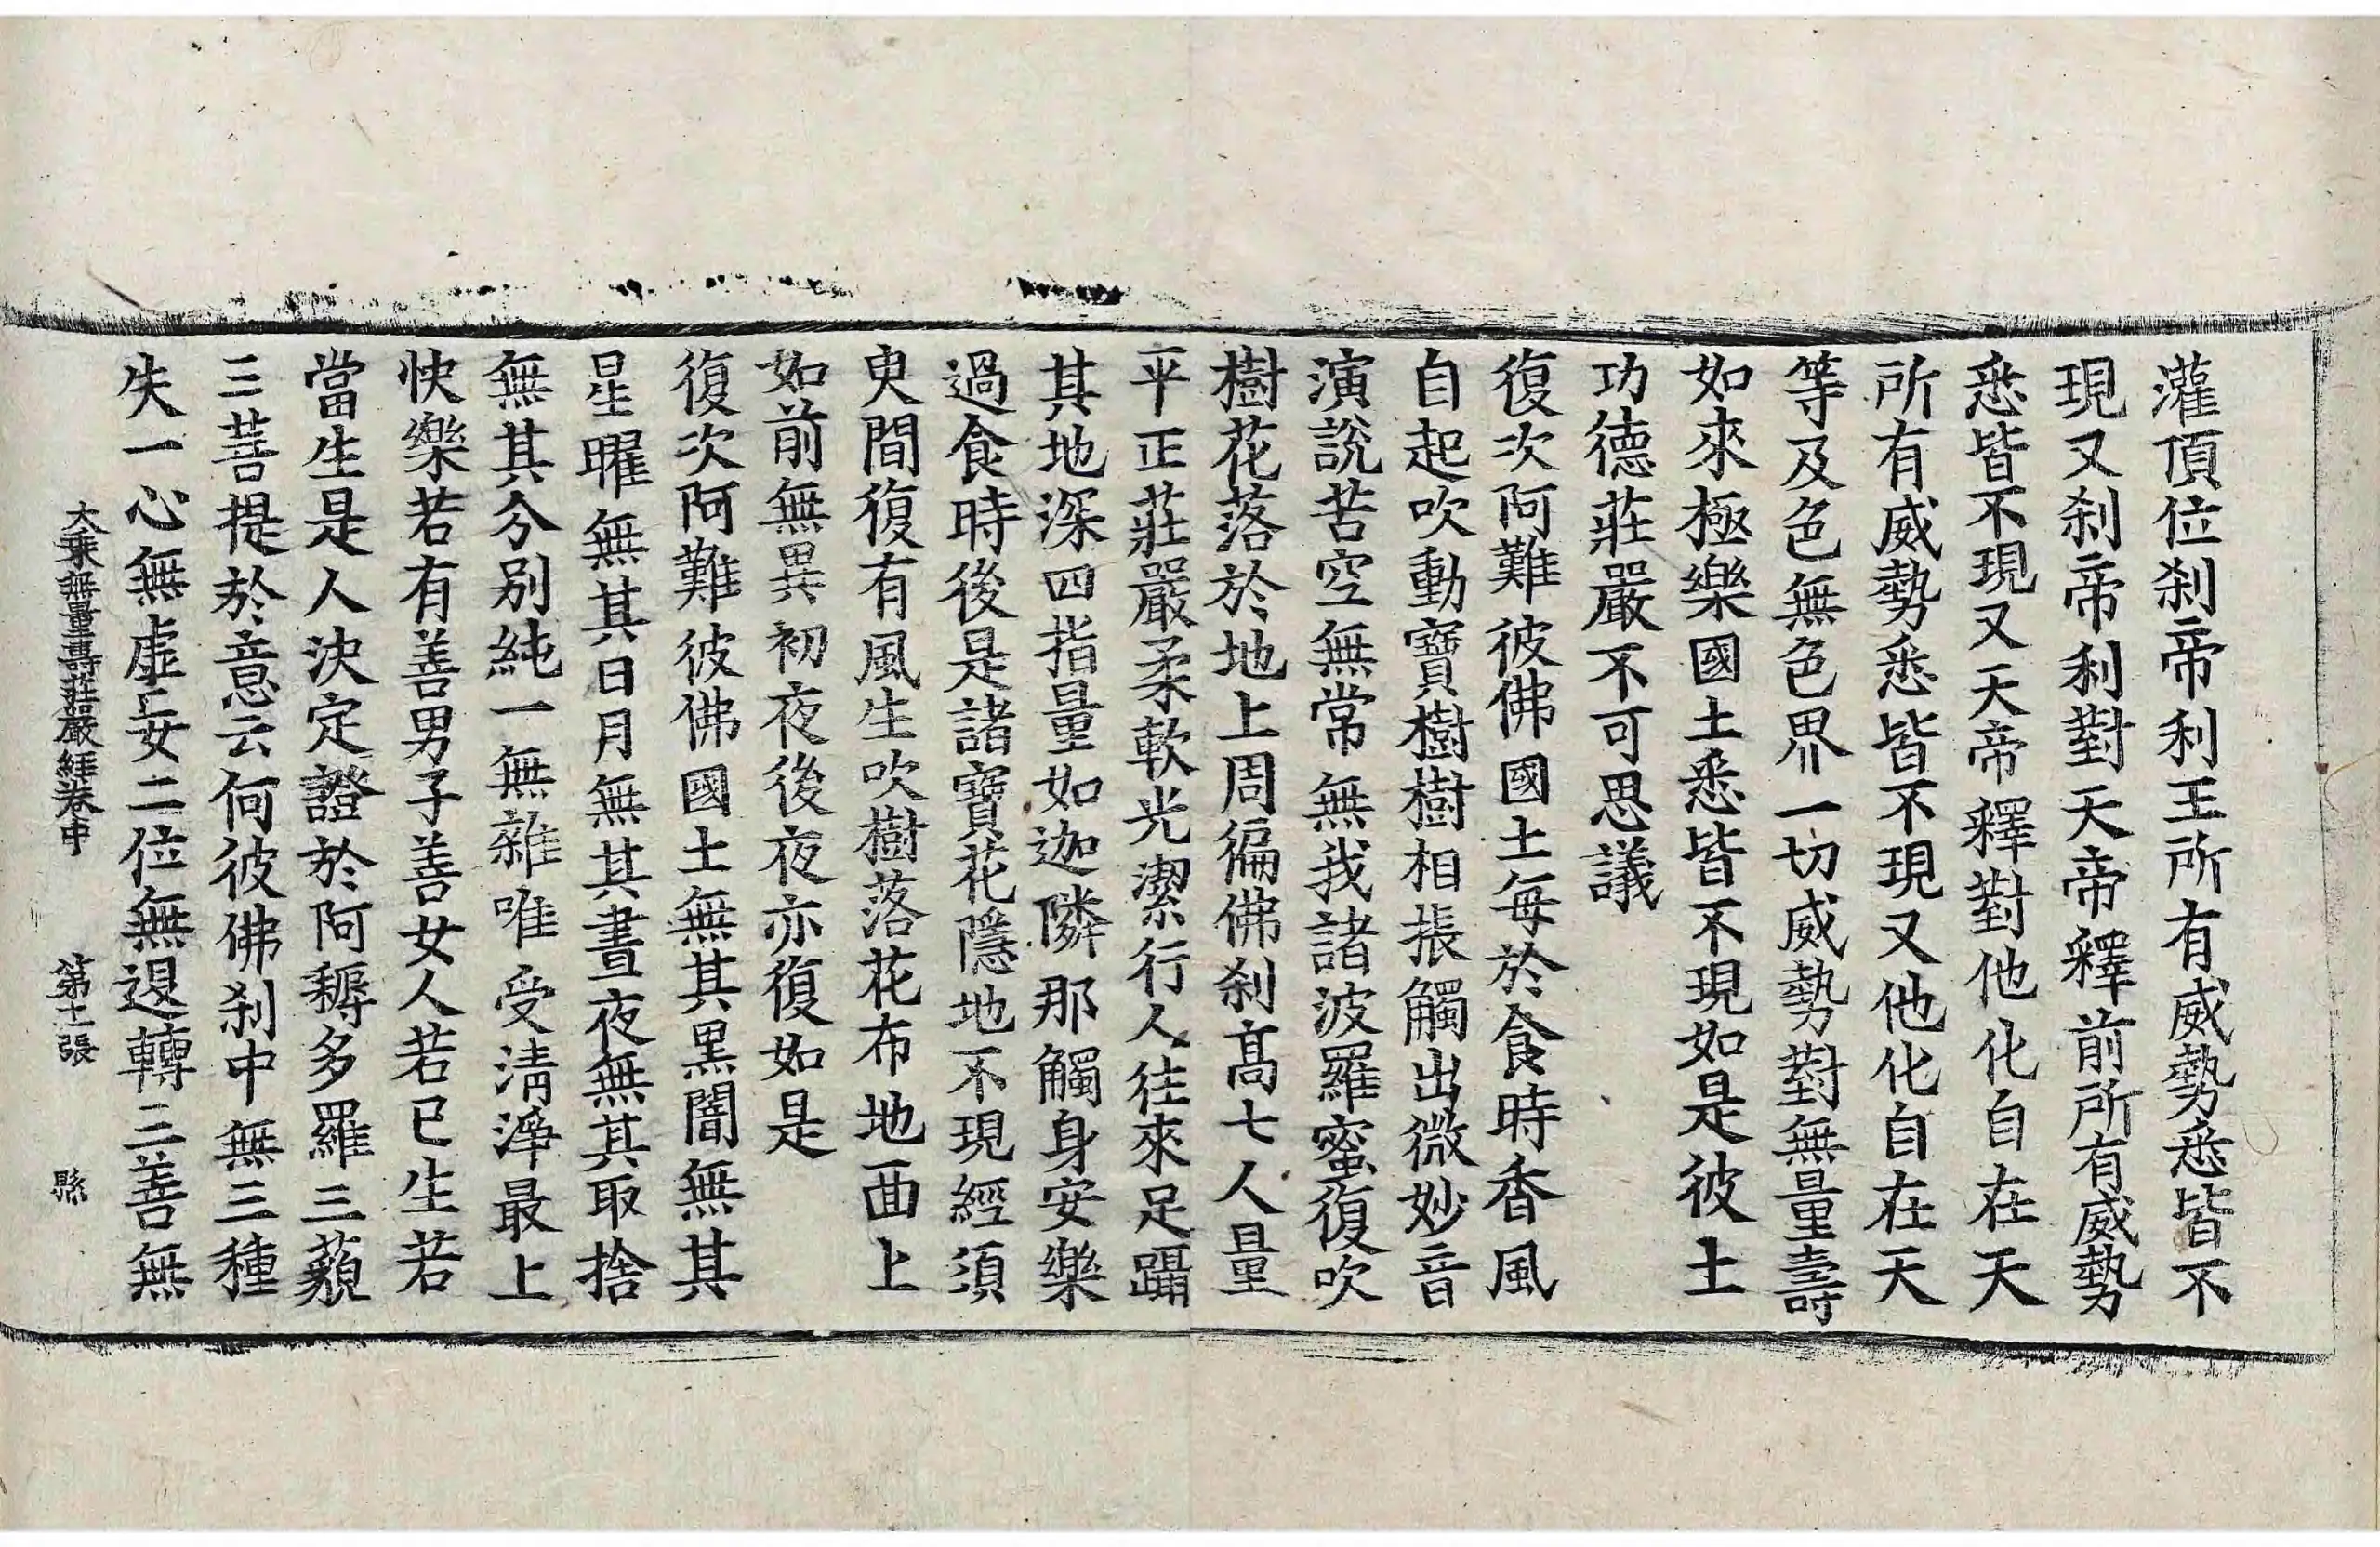 灌頂位刹帝利王所有威勢悉皆不
現又刹帝利對天帝釋前所有威勢
悉皆不現又天帝釋對他化自在天
所有威勢悉皆不現又他化自在天
等及色無色界一切威勢對無量壽
如來極樂國土悉皆不現如是彼土
功德莊嚴不可思議
復次阿難彼佛國土每於食時香風
自起吹動寶樹樹相掁觸出微妙音
演說苦空無常無我諸波羅蜜復吹
樹花落於地上周徧佛刹高七人量
平正莊嚴柔軟光潔行人往來足躡
其地深四指量如迦隣那觸身安樂
過食時後是諸寶花隱地不現經須
臾間復有風生吹樹落花布地面上
如前無異初夜後夜亦復如是
復次阿難彼佛國土無其黑闇無其
星曜無其日月無其晝夜無其取捨
無其分别純一無雜唯受清淨最上
快樂若有善男子善女人若已生若
當生是人決定證於阿耨多羅三藐
三菩提於意云何彼佛刹中無三種
失一心無虛妄二位無退轉三善無
大乘無量壽莊嚴經卷中 第十二張 縣